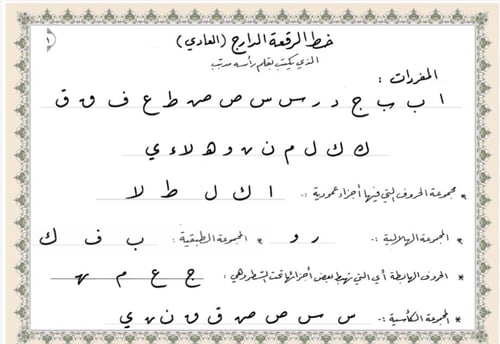 خط الرقعة الدارج (العادي)
١
الذي يكتب بقلم رأسه مدبب
المفردات :
ا ب ب ج د ر س س ص ص ط ع ف ق ق
ك ك ل م ن ن و ه لا ء ي
* مجموعة الحروف التي فيها أجزاء عمودية :- ا ك ل ط لا
* المجموعة الهلالية :- ر و * المجموعة الطبقية :- ب ف ك
* الحروف الهابطة أي التي تهبط بعض أجزائها تحت السطر وهي : ج ع م ه
* المجموعة الكأسية :- س س ص ص ق ق ن ن ي